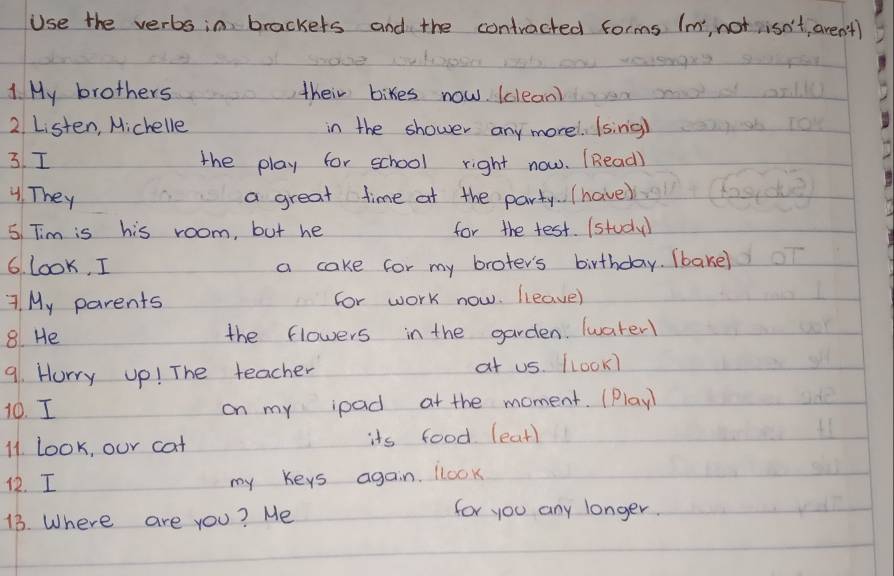 Use the verbs in brackets and the contracted forms (m', not, isn't, aren't)
1. My brothers their bikes now. (clean)
2. Listen, Michelle in the shower any more!. (sing)
3. I the play for school right now. (Read)
4. They a great time at the party. (have)
5. Tim is his room, but he for the test. (study)
6. Look, I a cake for my broter's birthday. (bake)
7. My parents for work now. (leave)
8. He the flowers in the garden. (water)
9. Hurry up! The teacher at us. (Look)
10. I on my ipad at the moment. (Play)
11. Look, our cat its food. (eat)
12. I my keys again. (look
13. Where are you? Me for you any longer.